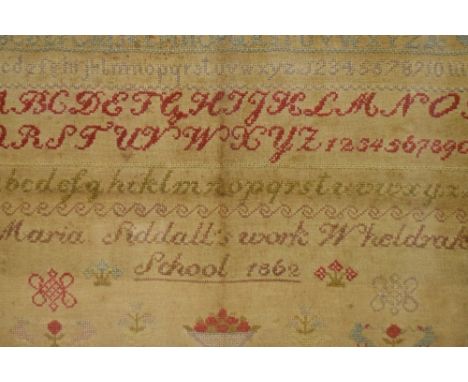 abcdefghijklmnopqrstuvwxyz12345678910
ABCDEFGHIJKLMNO
RSTUVWXYZ 1234567890
abcdefghiklmnopqrstuvwxyz
Maria Siddall's work Wheldrake
School 1862